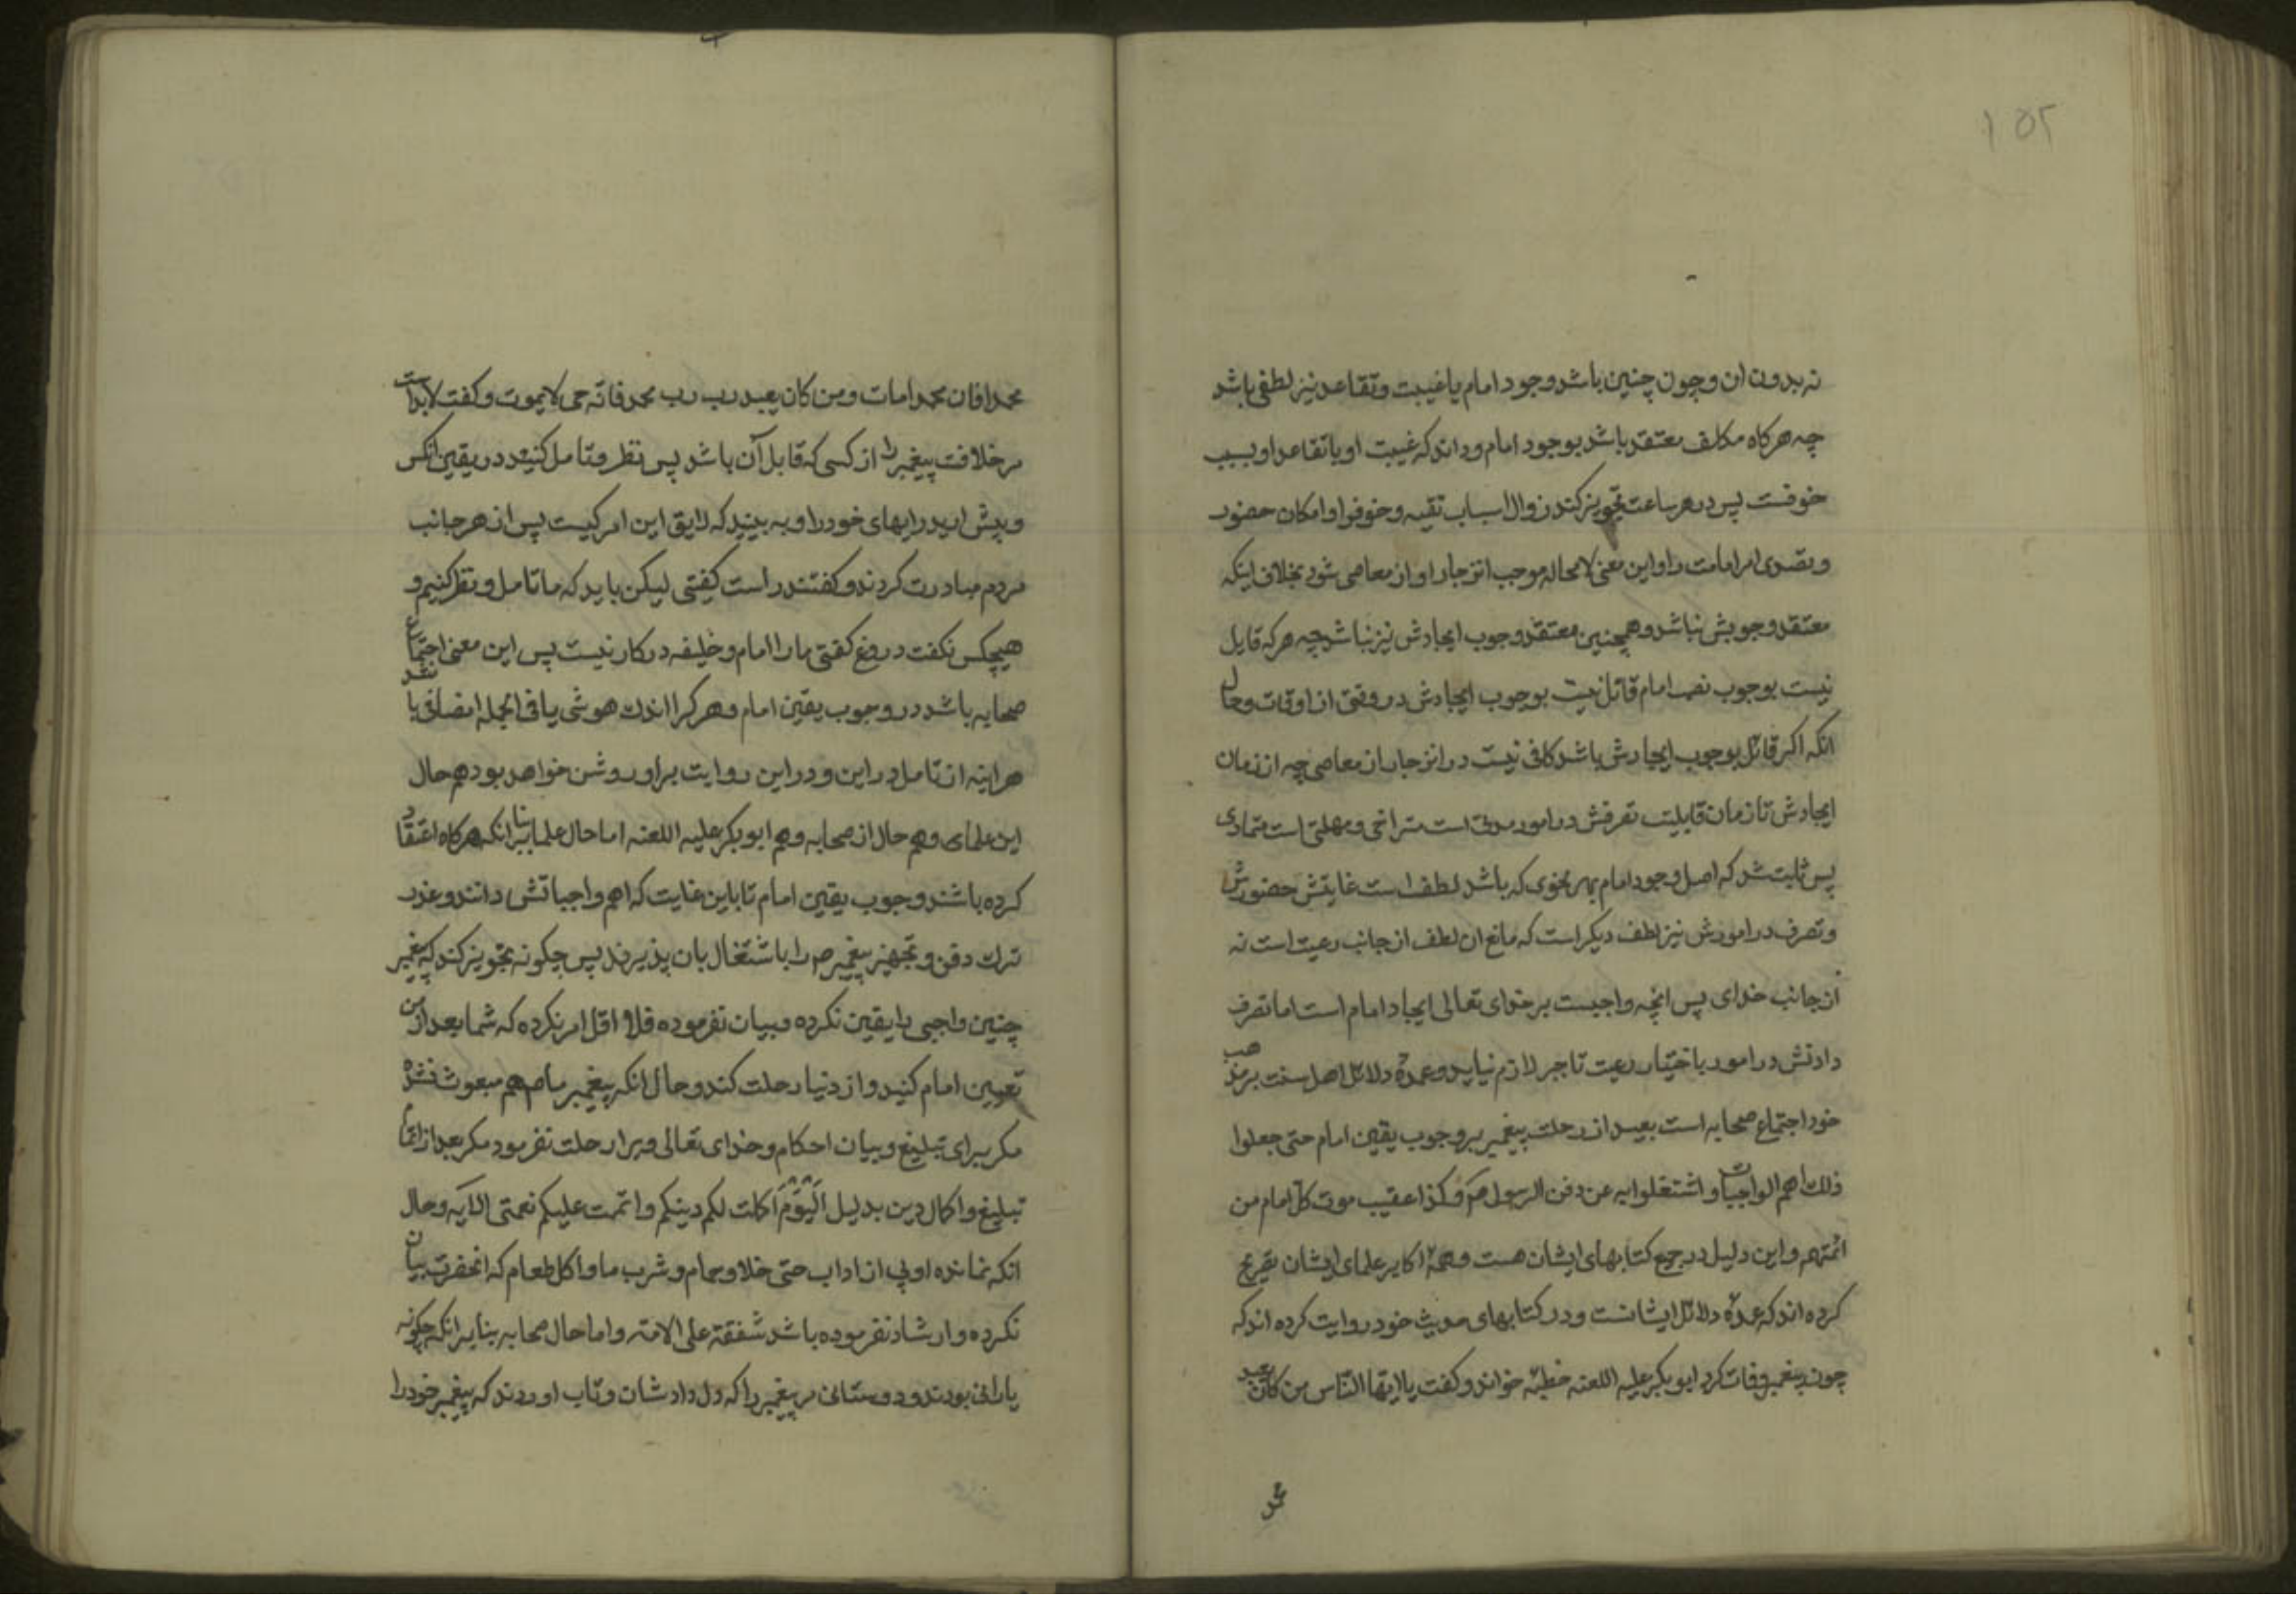 ۱۵۲
نه بدون ان و چون چنین باشد وجود امام یا غیبت و تقاعد نیز لطفی باشد
چه هرکاه مکلف معتقد باشد بوجود امام و داند که غیبت او یا تقاعد او بسبب
خوفست پس در هر ساعت تجویز کند زوال اسباب تقیه و خوف او امکان حضور
و تصدی امر امامت را و این معنی لامحاله موجب انزجار او از معاصی شود بخلاف اینکه
معتقد وجوبش نباشد و همچنین معتقد وجوب ایجادش نیز نباشد چه هر که قایل
نیست بوجوب نصب امام قائل نیست بوجوب ایجادش در وقتی از اوقات و حال
انکه اکر قائل بوجوب ایجادش باشد کافی نیست در انزجار از معاصی چه از زمان
ایجادش تا زمان قابلیت تصرفش در امور مدتی است متراخی و مهلتی است متمادی
پس ثابت شد که اصل وجود امام بهر نحوی که باشد لطف است غایتش حضورش
و تصرف در امورش نیز لطف دیکر است که مانع ان لطف از جانب رعیت است نه
از جانب خدای پس انچه واجبست بر خدای تعالی ایجاد امام است اما تصرف
دادنش در امور باختیار رعیت تا جبر لازم نیاید و عمدهٔ دلائل اهل سنت بر مذهب
خود اجتماع صحابه است بعید از رحلت پیغمبر بر وجوب یقین امام حتی جعلوا
ذلک اهم الواجبات و اشتغلوا به عن دفن الرسول صم و کذا عقیب موت کل امام من
ائمتهم و این دلیل در جمیع کتابهای ایشان هست و همهٔ اکابر علمای ایشان تصریح
کرده اند که عمدهٔ دلائل ایشانست و در کتابهای حدیث خود روایت کرده اند که
چون پیغمبر وفات کرد ابوبکر علیه اللعنه خطبهٔ خواند و کفت یا ایها الناس من کان یعبد
محمد
محمدا فان محمدا مات و من کان یعبد رب رب محمد فانه حی لا یموت و کفت لابد است
مر خلافت پیغمبر را از کسی که قابل آن باشد پس نظر و تامل کنید در یقین انکس
و پیش ارید رایهای خود را و به بینید که لایق این امر کیست پس از هر جانب
مردم مبادرت کردند و کفتند راست کفتی لیکن باید که ما تامل و نظر کنیم و
هیچکس نکفت دروغ کفتی ما را امام و خلیفه در کار نیست پس این معنی اجتماع
صحابه باشد در وجوب یقین امام و هر کرا اندک هوشی یا فی الجمله انصافی باشد
هراینه از تامل در این و در این روایت بر او روشن خواهد بود هم حال
این علمای و هم حال از صحابه و هم ابوبکر علیه اللعنه اما حال علما بنا بر انکه هرکاه اعتقاد
کرده باشند وجوب یقین امام تا باین غایت که اهم واجباتش دانند و عذر
ترک دفن و تجهیز پیغمبر صم را باشتغال بان پذیرند پس چکونه تجویز کند که پیغمبر
چنین واجبی را یقین نکرده و بیان نفرموده قلا و اقل امر نکرده که شما بعد از من
تعیین امام کنید و از دنیا رحلت کند و حال انکه پیغمبر ما صم هم مبعوث نشده
مکر برای تبلیغ و بیان احکام و خدای تعالی ویرا رحلت نفرمود مکر بعد از اتمام
تبلیغ و اکمال دین بدلیل اَلْیَوْمَ اکملت لکم دینکم و اتممت علیکم نعمتی الایه و حال
انکه نمانده اوبی از اداب حتی خلا و حمام و شرب ما و اکل طعام که انحضرت بیان
نکرده و ارشاد نفرموده باشد شفقة علی الامه و اما حال صحابه بنا بر انکه چکونه
یارانی بودند و دوستانی مر پیغمبر را که دل داد شان و تاب اوردند که پیغمبر خود را